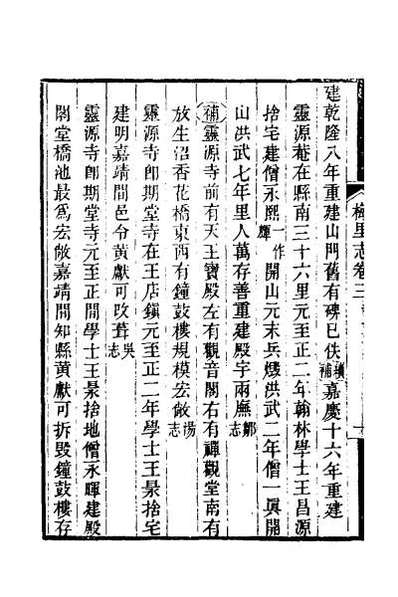 梅里志卷三
建乾隆八年重建山門舊有碑已佚續補嘉慶十六年重建
靈源菴在縣南三十六里元至正二年翰林學士王昌源
捨宅建僧永熙一作輝開山元末兵燬洪武二年僧一眞開
山洪武七年里人萬存善重建殿宇兩廡鄒志
補靈源寺前有天王寶殿左有觀音閣右有禪觀堂南有
放生沼香花橋東西有鐘鼓樓規模宏敞楊志
靈源寺卽期堂寺在王店鎮元至正二年學士王景捨宅
建明嘉靖間邑令黄獻可改葺吳志
靈源寺卽期堂寺元至正間學士王景捨地僧永暉建殿
閣堂橋池最爲宏敞嘉靖間知縣黄獻可拆毀鐘鼓樓存